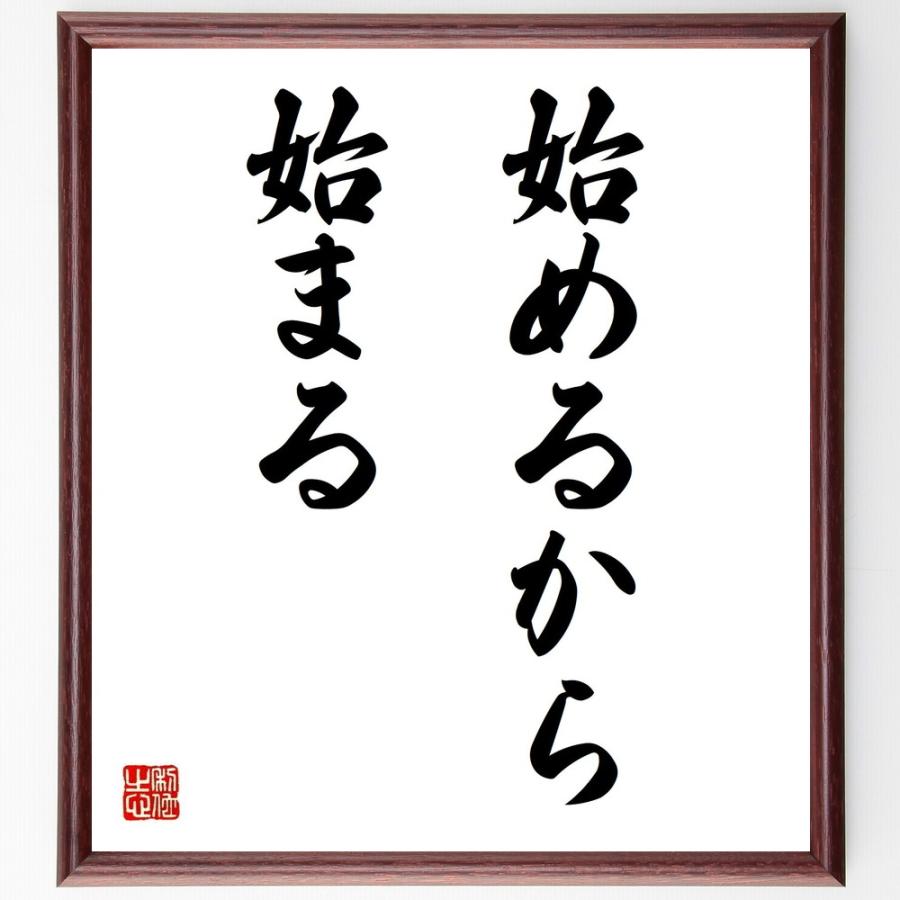 始めるから
始まる